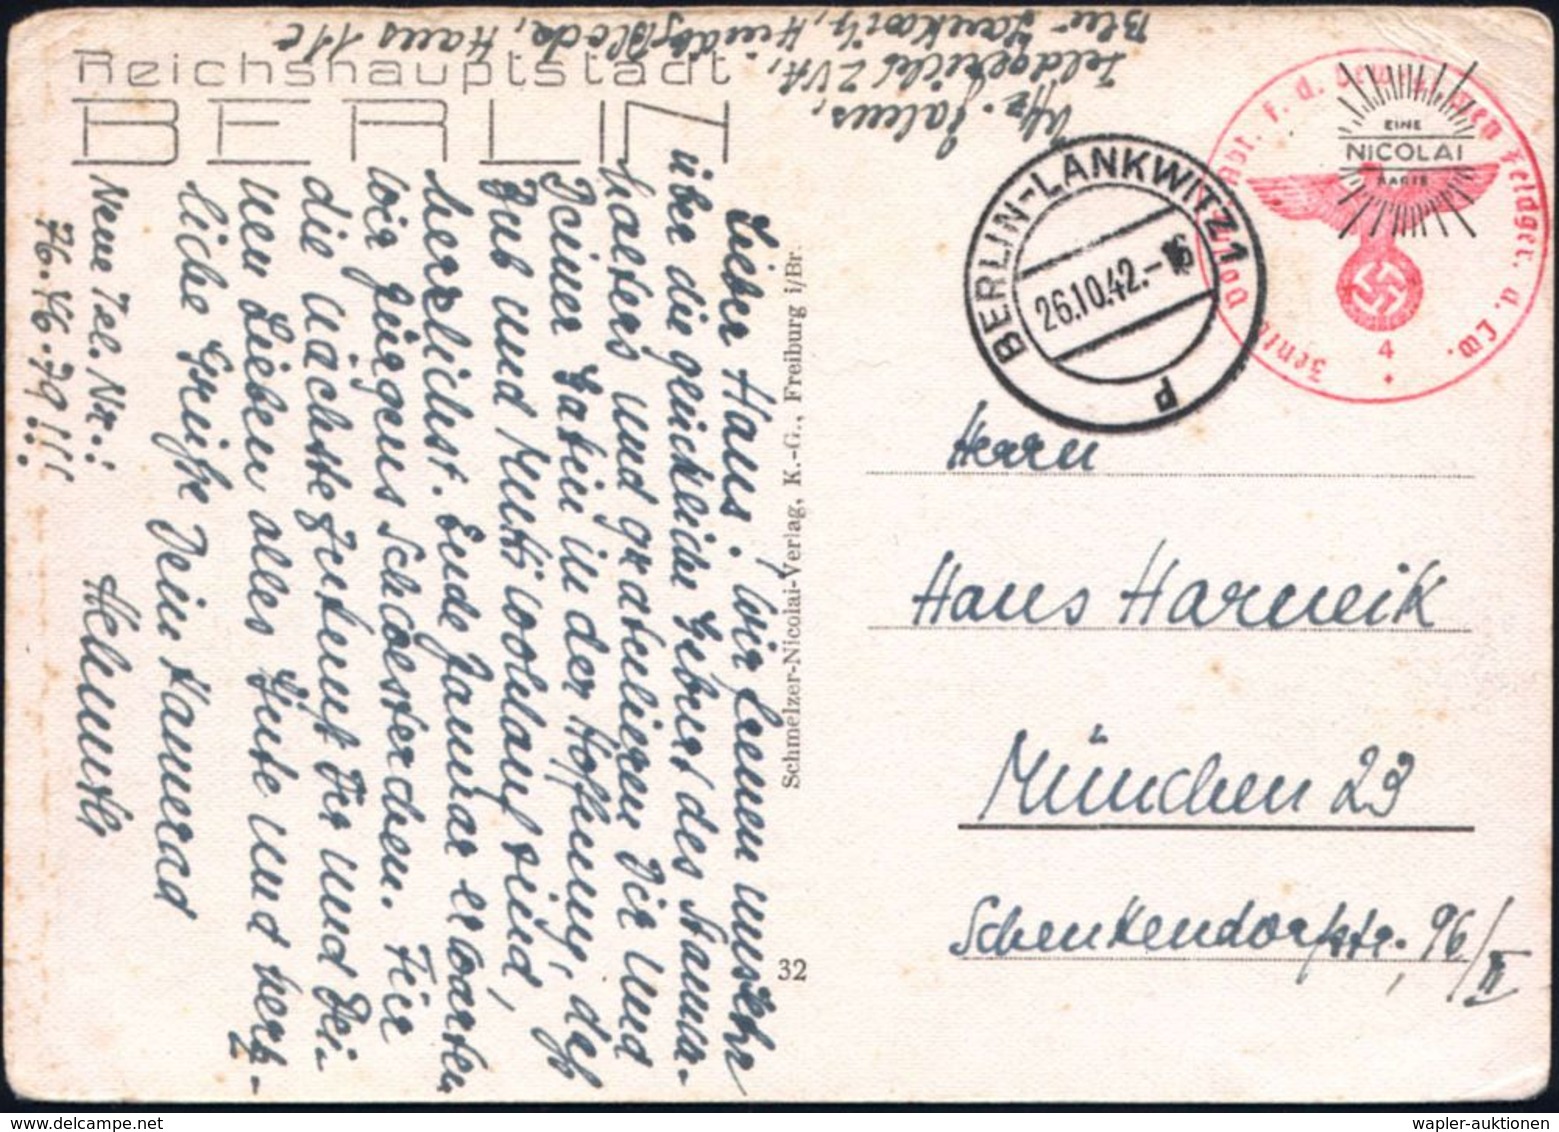 Reichshauptstadt
BERLIN
Uffz. 
Feldgericht z. b. V.,
Bln-Lankwitz, Haus 11c
EINE
NICOLAI
KARTE
BERLIN-LANKWITZ 1
26.10.42.-16
p
f. d. Feldger. d. Lw.
4
Lieber Hans! Wir freuen uns sehr
über die glückliche Geburt des Stamm-
halters und gratulieren Dir und
Deiner Gattin in der Hoffnung, daß
Bub und Mutti wohlauf sind,
herzlichst. Ende Januar erwarten
wir Jürgens Schwesterchen. Für
die nächste Zukunft Dir und Dei-
nen Lieben alles Gute und herz-
liche Grüße Dein Kamerad
Helmuth
Neue Tel. Nr.:
76.46.79!!!
Schmelzer-Nicolai-Verlag, K.-G., Freiburg i/Br.
32
Herrn
Hans Harneik
München 23
Schenkendorfstr. 96/II
wapler-auktionen